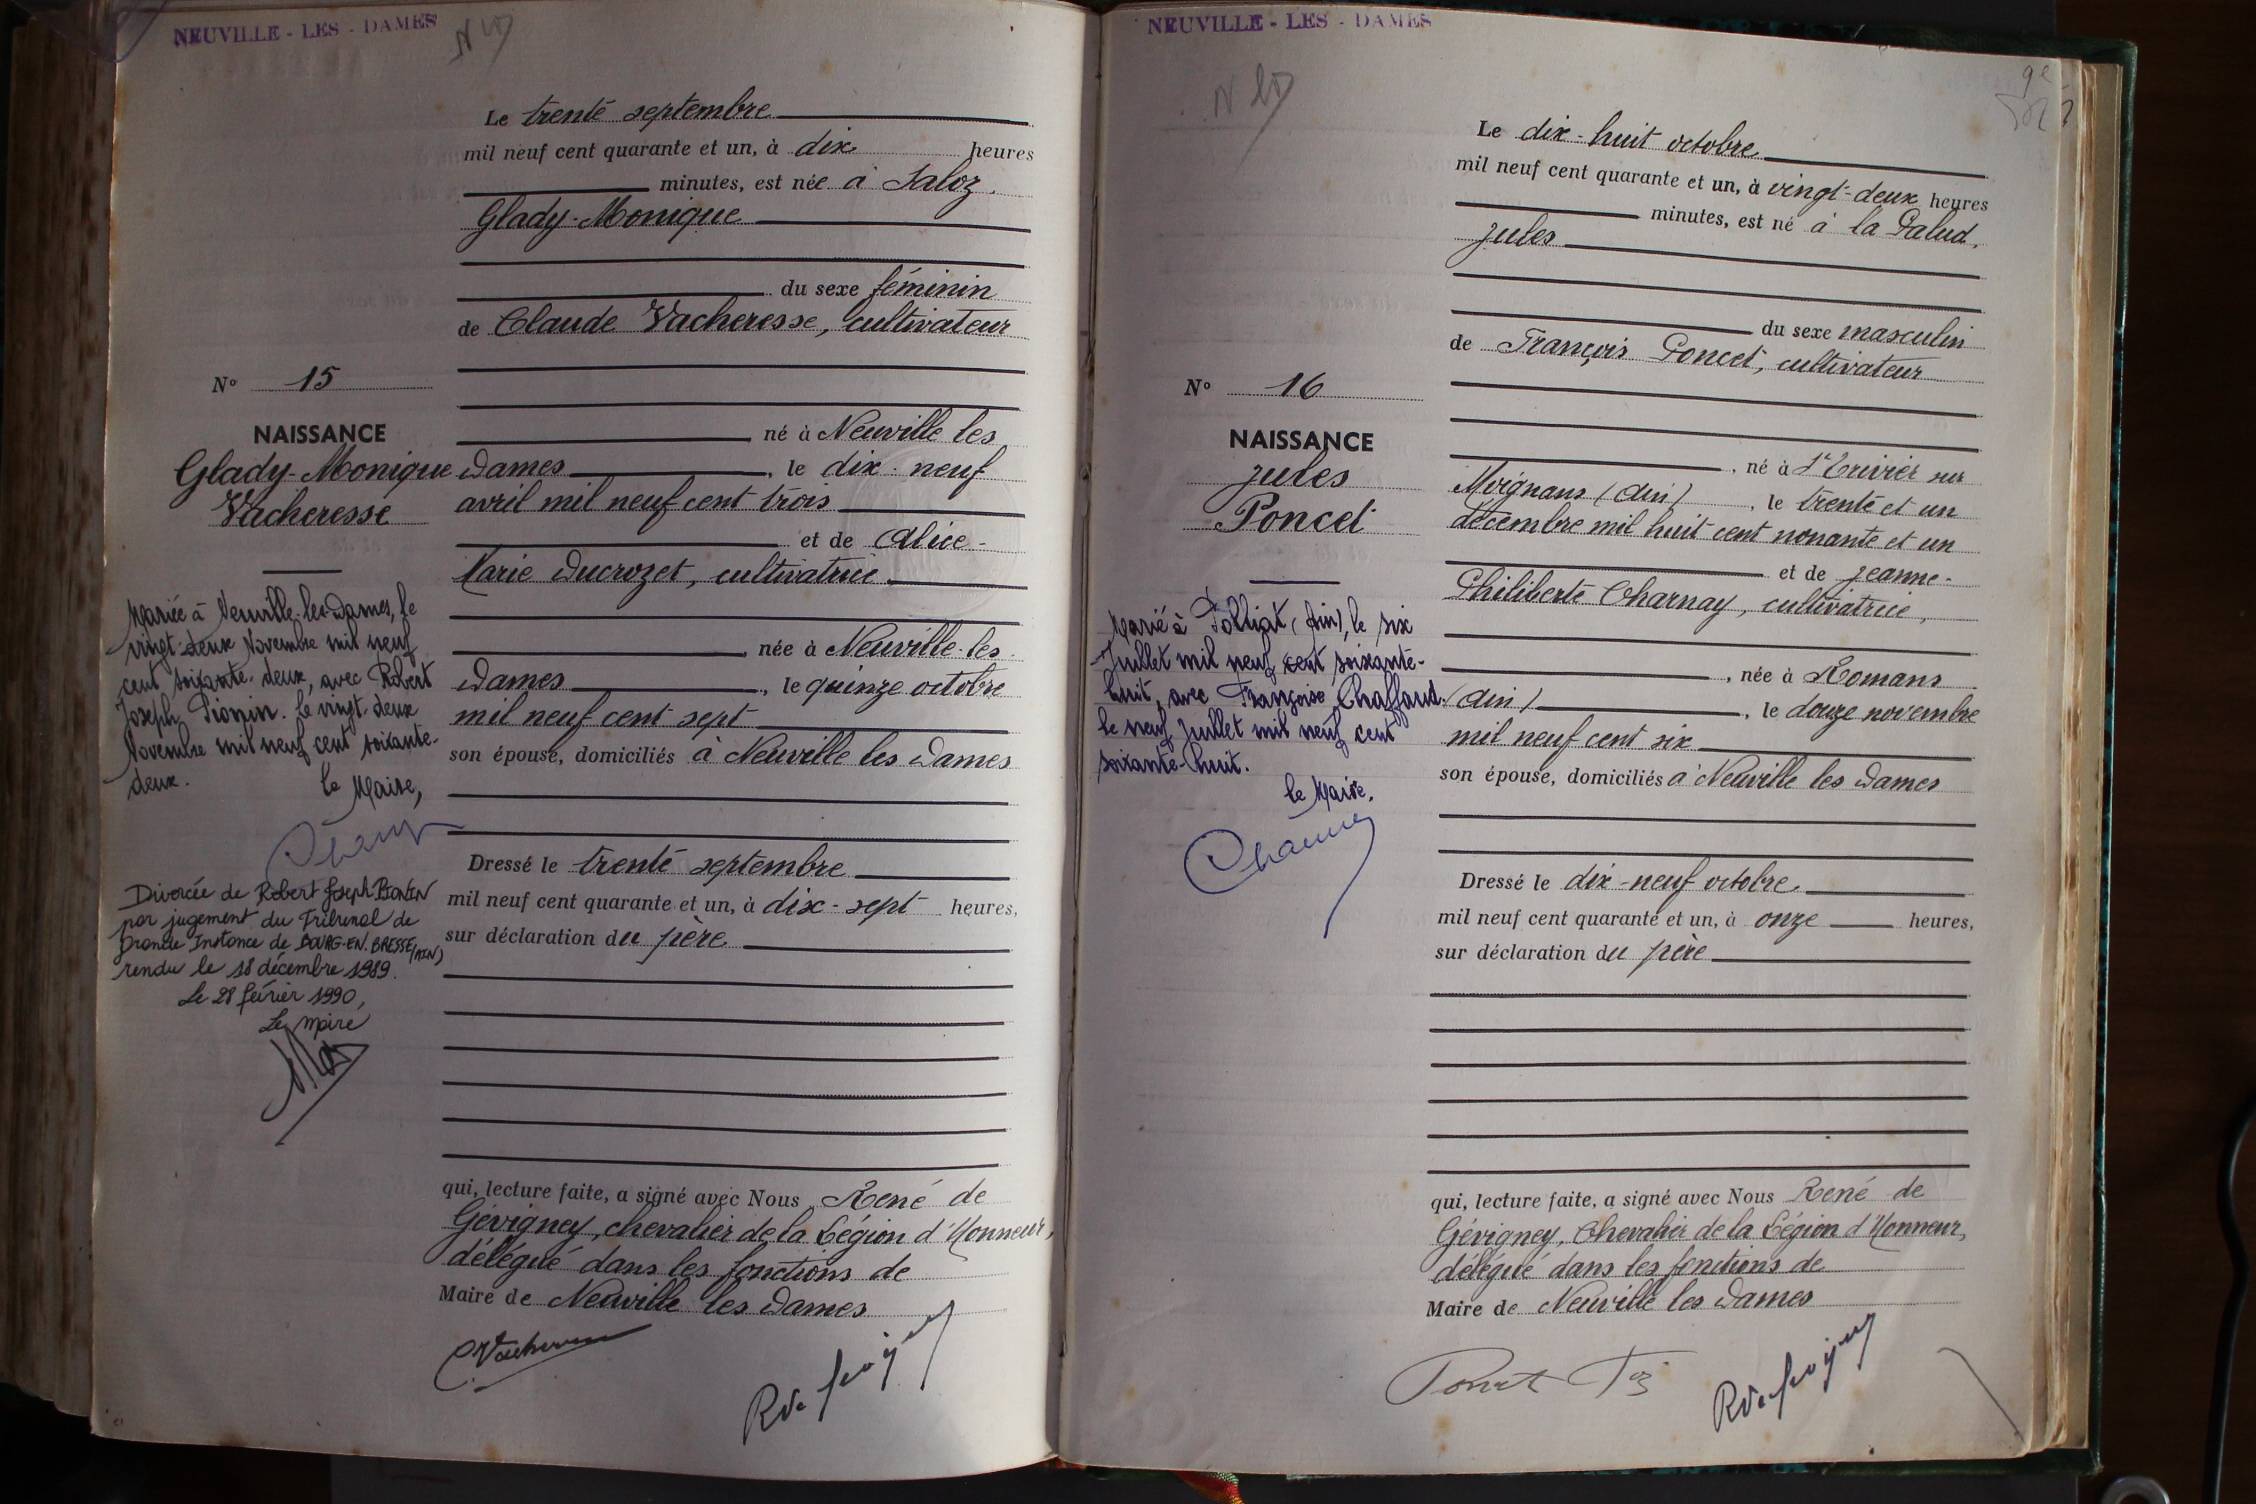 NEUVILLE - LES - DAMES
Le trente septembre
mil neuf cent quarante et un, à dix heures
minutes, est née à Saloz,
Glady-Monique
du sexe féminin
de Claude Vacheresse, cultivateur
N° 15
NAISSANCE
Glady-Monique
Vacheresse
né à Neuville les
Dames, le dix-neuf
avril mil neuf cent trois
et de Alice-
Marie Ducrozet, cultivatrice
née à Neuville-les-
Dames, le quinze octobre
mil neuf cent sept
son épouse, domiciliés à Neuville les Dames
Mariée à Neuville-les-Dames, le
vingt-deux Novembre mil neuf
cent soixante-deux, avec Robert
Joseph Pionin. Le vingt-deux
Novembre mil neuf cent soixante-
deux.
le Maire,
Divorcée de Robert Joseph PIONIN
par jugement du Tribunal de
Grande Instance de BOURG-EN-BRESSE (AIN)
rendu le 18 décembre 1989.
Le 28 février 1990,
Le maire
Dressé le trente septembre
mil neuf cent quarante et un, à dix-sept heures,
sur déclaration du père
qui, lecture faite, a signé avec Nous René de
Gévigney, chevalier de la Légion d'Honneur,
délégué dans les fonctions de
Maire de Neuville les Dames
NEUVILLE - LES - DAMES
Le dix-huit octobre
mil neuf cent quarante et un, à vingt-deux heures
minutes, est né à la Palud,
Jules
du sexe masculin
de François Poncet, cultivateur
N° 16
NAISSANCE
Jules
Poncet
né à St Trivier sur
Moignans (Ain), le trente et un
décembre mil huit cent nonante et un
et de Jeanne-
Philiberte Charnay, cultivatrice,
née à Romans
(Ain), le douze novembre
mil neuf cent six
son épouse, domiciliés à Neuville les Dames
Marié à Polliat (Ain), le six
Juillet mil neuf cent soixante-
huit, avec Françoise Chaffaud.
le neuf Juillet mil neuf cent
soixante-huit.
le Maire.
Dressé le dix-neuf octobre
mil neuf cent quarante et un, à onze heures,
sur déclaration du père
qui, lecture faite, a signé avec Nous René de
Gévigney, Chevalier de la Légion d'Honneur,
délégué dans les fonctions de
Maire de Neuville les Dames
Poncet